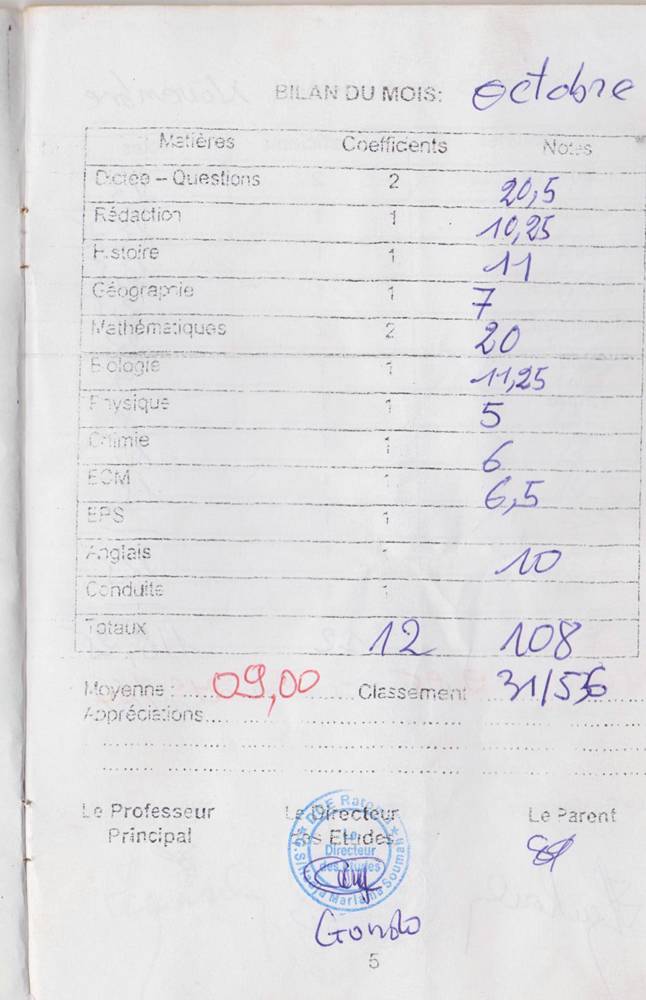 BILAN DU MOIS: Octobre
Matières Coefficents Notes
Dictée – Questions 2 20,5
Rédaction 1 10,25
Histoire 1 11
Géographie 1 7
Mathématiques 2 20
Biologie 1 11,25
Physique 1 5
Chimie 1 6
ECM 1 6,5
EPS 1
Anglais 1 10
Conduite 1
Totaux 12 108
Moyenne : 09,00 Classement 31/556
Appréciations
Le Professeur Principal
Le Directeur des Etudes
Le Parent
DPE Ratoma
Le Directeur des Etudes
G.S/Hadja Mariama Soumah
5